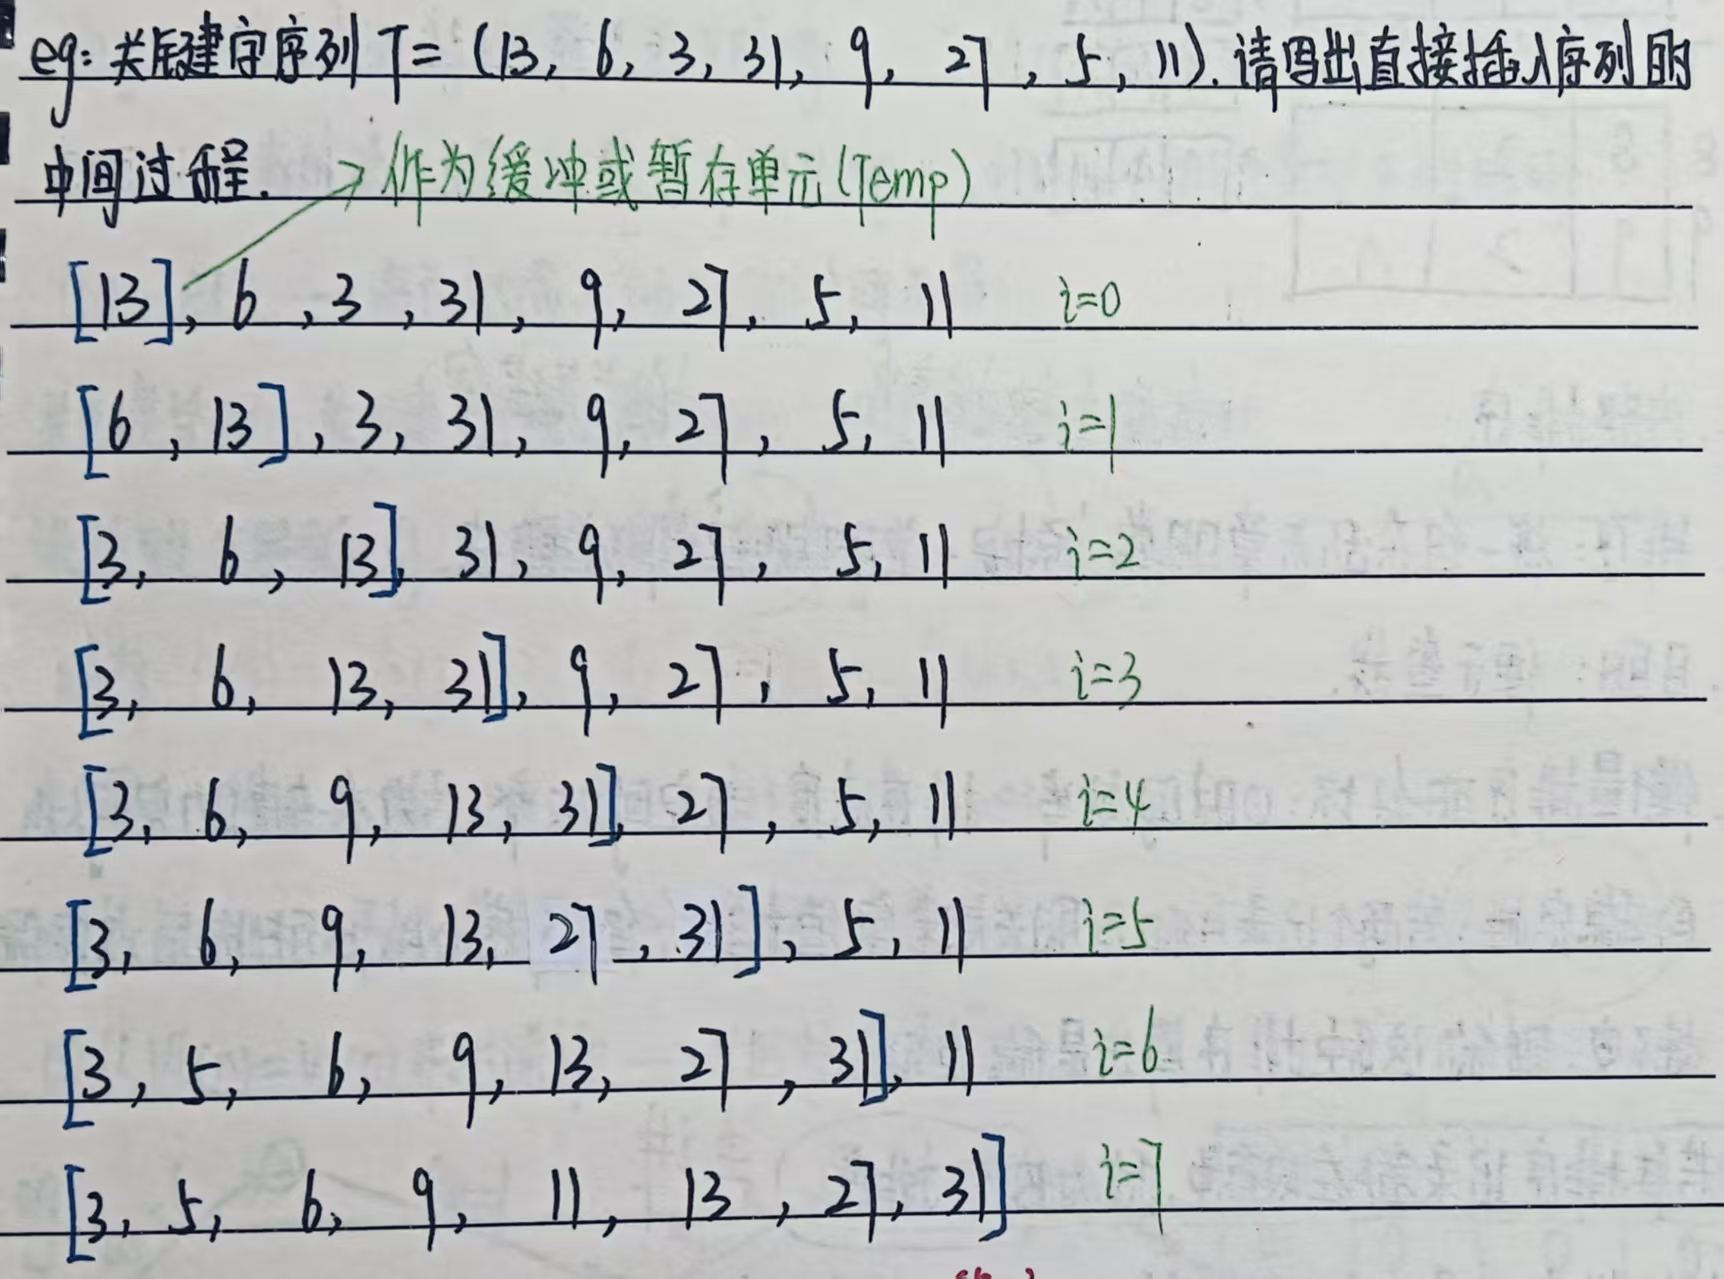 eg: 关键建字序列 T = (13, 6, 3, 31, 9, 27, 5, 11). 请写出直接插入序列的
中间过程. → 作为缓冲或暂存单元(Temp)
[13], 6, 3, 31, 9, 27, 5, 11 i=0
[6, 13], 3, 31, 9, 27, 5, 11 i=1
[3, 6, 13], 31, 9, 27, 5, 11 i=2
[3, 6, 13, 31], 9, 27, 5, 11 i=3
[3, 6, 9, 13, 31], 27, 5, 11 i=4
[3, 6, 9, 13, 27, 31], 5, 11 i=5
[3, 5, 6, 9, 13, 27, 31], 11 i=6
[3, 5, 6, 9, 11, 13, 27, 31] i=7